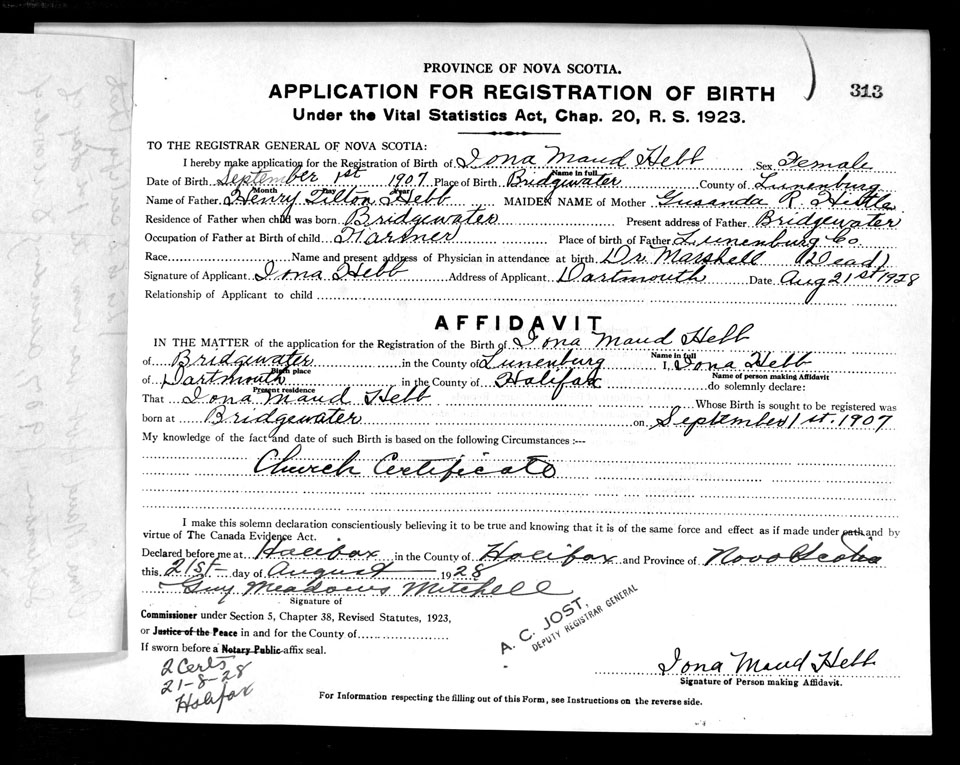 PROVINCE OF NOVA SCOTIA.
313
APPLICATION FOR REGISTRATION OF BIRTH
Under the Vital Statistics Act, Chap. 20, R. S. 1923.
TO THE REGISTRAR GENERAL OF NOVA SCOTIA:
I hereby make application for the Registration of Birth of Iona Maud Hebb Sex Female
Name in full
Date of Birth September 1st 1907 Place of Birth Bridgewater County of Lunenburg
Month Day Year
Name of Father Henry Tilton Hebb MAIDEN NAME of Mother R Hirtle
Residence of Father when child was born Bridgewater Present address of Father Bridgewater
Occupation of Father at Birth of child Farmer Place of birth of Father Lunenburg Co
Race Name and present address of Physician in attendance at birth Dr. Marshell (Dead)
Signature of Applicant Iona Hebb Address of Applicant Dartmouth Date Aug 21st 1928
Relationship of Applicant to child
AFFIDAVIT
IN THE MATTER of the application for the Registration of the Birth of Iona Maud Hebb
Name in full
of Bridgewater in the County of Lunenburg I, Iona Hebb
Birth place Name of person making Affidavit
of Dartmouth in the County of Halifax do solemnly declare:
Present residence
That Iona Maud Hebb Whose Birth is sought to be registered was
born at Bridgewater on September 1st. 1907
My knowledge of the fact and date of such Birth is based on the following Circumstances :—
Church Certificate
I make this solemn declaration conscientiously believing it to be true and knowing that it is of the same force and effect as if made under oath and by
virtue of The Canada Evidence Act.
Declared before me at Halifax in the County of Halifax and Province of Nova Scotia
this 21st day of August 1928
Guy Meadows Mitchell
Signature of
Commissioner under Section 5, Chapter 38, Revised Statutes, 1923,
or Justice of the Peace in and for the County of
If sworn before a Notary Public affix seal.
A. C. JOST,
DEPUTY REGISTRAR GENERAL
2 Certs
21-8-28
Halifax
Iona Maud Hebb
Signature of Person making Affidavit.
For Information respecting the filling out of this Form, see Instructions on the reverse side.